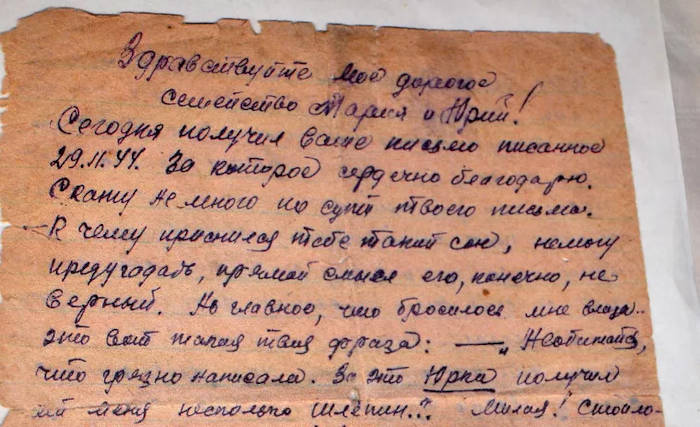 Здравствуйте мое дорогое
семейство Мария и Юрий!
Сегодня получил Ваше письмо писанное
29.11.44. За которое сердечно благодарю.
Скажу немного по сути твоего письма.
К чему приснился тебе такой сон, немогу
предугадать, прямой смысл его, конечно, не
верный. Но главное, что бросилось мне вглаза..
это вот такая твоя фраза: — „Необижайся,
что грязно написала. За это Юрка получил
от меня несколько шлепин..? Милая! Стоило-